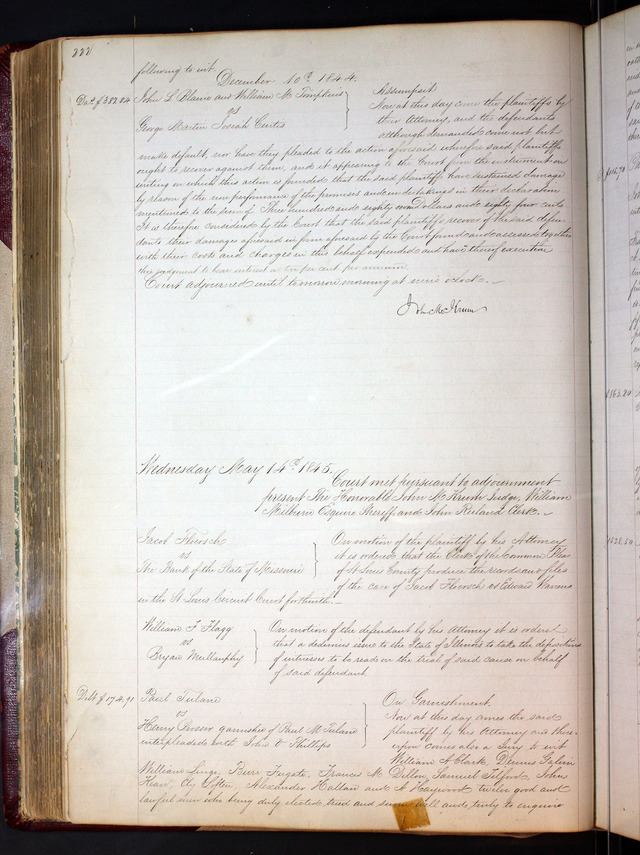 222
following to wit
December 10th 1844.
Dat. $387.84
John L Blaine and William M Tompkins
vs
George Martin Josiah Curtis
Assumpsit
Now at this day come the plaintiffs by
their Attorney, and the defendants
although demanded come not but
make default, nor have they pleaded to the action aforesaid wherefore said plaintiffs
ought to recover against them, and it appearing to the Court from the instrument in
writing on which this action is founded that the said plaintiffs have sustained damage
by reason of the non performance of the promises and undertakings in their declaration
mentioned to the sum of Three hundred and eighty seven Dollars and eighty four cents
It is therefore considered by the Court that the said plaintiffs recover of the said defen-
dants their damages aforesaid in form aforesaid by the Court found and assessed together
with their costs and charges in this behalf expended and have thereof execution
this judgment to bear interest at ten per cent per annum
Court adjourned until tomorrow morning at nine o'clock.
John M Krum
Wednesday May 14th 1845.
Court met pursuant to adjournment
present The Honorable John M Krum Judge, William
Milburn Esquire Sheriff and John Ruland Clerk.
Jacob Floersch
vs
The Bank of the State of Missouri
On motion of the plaintiff by his Attorney
it is ordered that the Clerk of the Common Pleas
of St Louis County produce the records and files
of the case of Jacob Floersch vs Edward Warrens
in the St Louis Circuit Court forthwith.
William F Flagg
vs
Bryan Mullanphy
On motion of the defendant by his Attorney it is ordered
that a dedimus issue to the State of Illinois to take the depositions
of witnesses to be read on the trial of said cause on behalf
of said defendant.
Debt $174.91
Paul Tulane
vs
Henry Prosser garnishee of Paul M Tulane
interpleaded with John O Phillips
On Garnishment.
Now at this day comes the said
plaintiff by his Attorney and there-
upon comes also a Jury to wit
William A Clark, Dennis Galvin
William Linge, Burr Fugate, Francis M Dillon, Samuel Telford, John
Alexander Hallam and A Haywood twelve good and
lawful men who being duly elected tried and sworn well and truly to enquire
$163.20